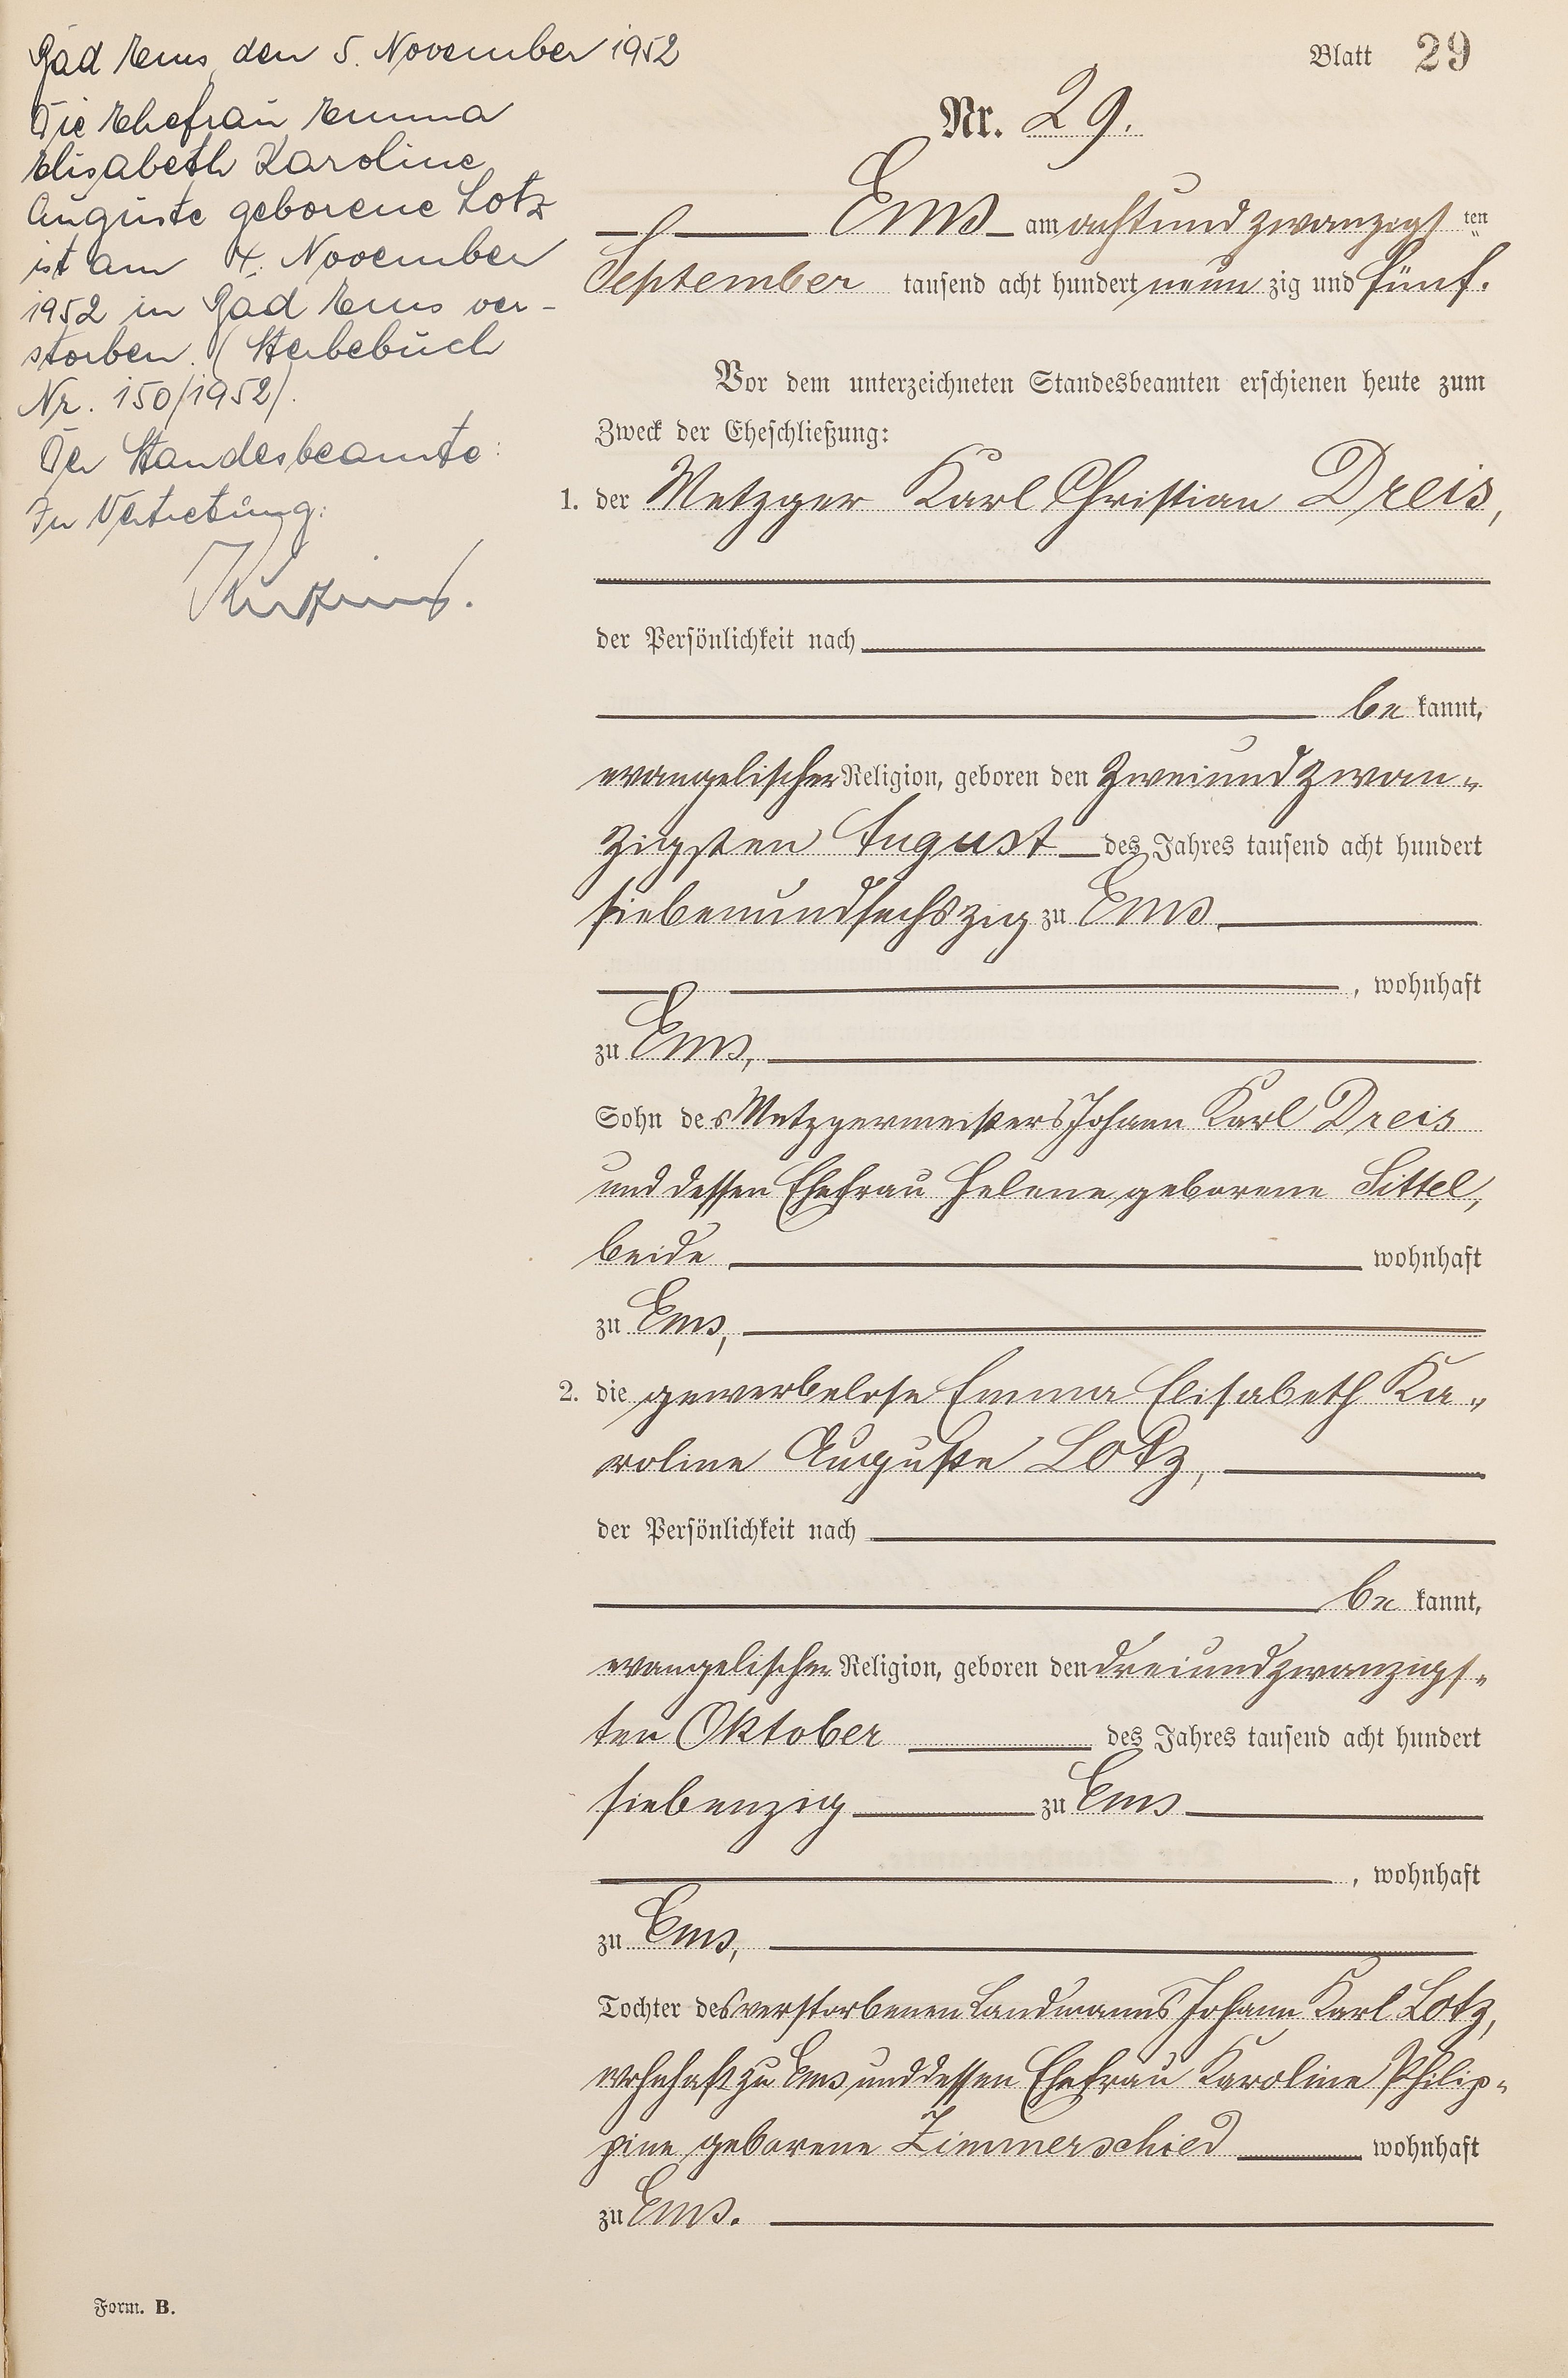 Bad Ems, den 5. November 1952
Die Ehefrau Emma
Elisabeth Karoline
Auguste geborene Lotz
ist am 4. November
1952 in Bad Ems ver-
storben. (Sterbebuch
Nr. 150/1952).
Der Standesbeamte:
In Vertretung:
Blatt 29
Nr. 29.
Ems am achtundzwanzigsten
September tausend acht hundert neunzig und fünf.
Vor dem unterzeichneten Standesbeamten erschienen heute zum
Zweck der Eheschließung:
1. der Metzger Karl Christian Dreis,
der Persönlichkeit nach
be kannt,
evangelischer Religion, geboren den zweiundzwan-
zigsten August des Jahres tausend acht hundert
siebenundsechszig zu Ems
, wohnhaft
zu Ems,
Sohn des Metzgermeisters Johann Karl Dreis
und dessen Ehefrau Helene geborene Sittel,
beide wohnhaft
zu Ems,
2. die gewerbelose Emma Elisabeth Ka-
roline Auguste Lotz,
der Persönlichkeit nach
be kannt,
evangelischer Religion, geboren den dreiundzwanzigs-
ten Oktober des Jahres tausend acht hundert
siebenzig zu Ems
, wohnhaft
zu Ems,
Tochter des verstorbenen Landmanns Johann Karl Lotz,
wohnhaft zu Ems und dessen Ehefrau Karoline Philip-
pine geborene Zimmerschied wohnhaft
zu Ems.
Form. B.